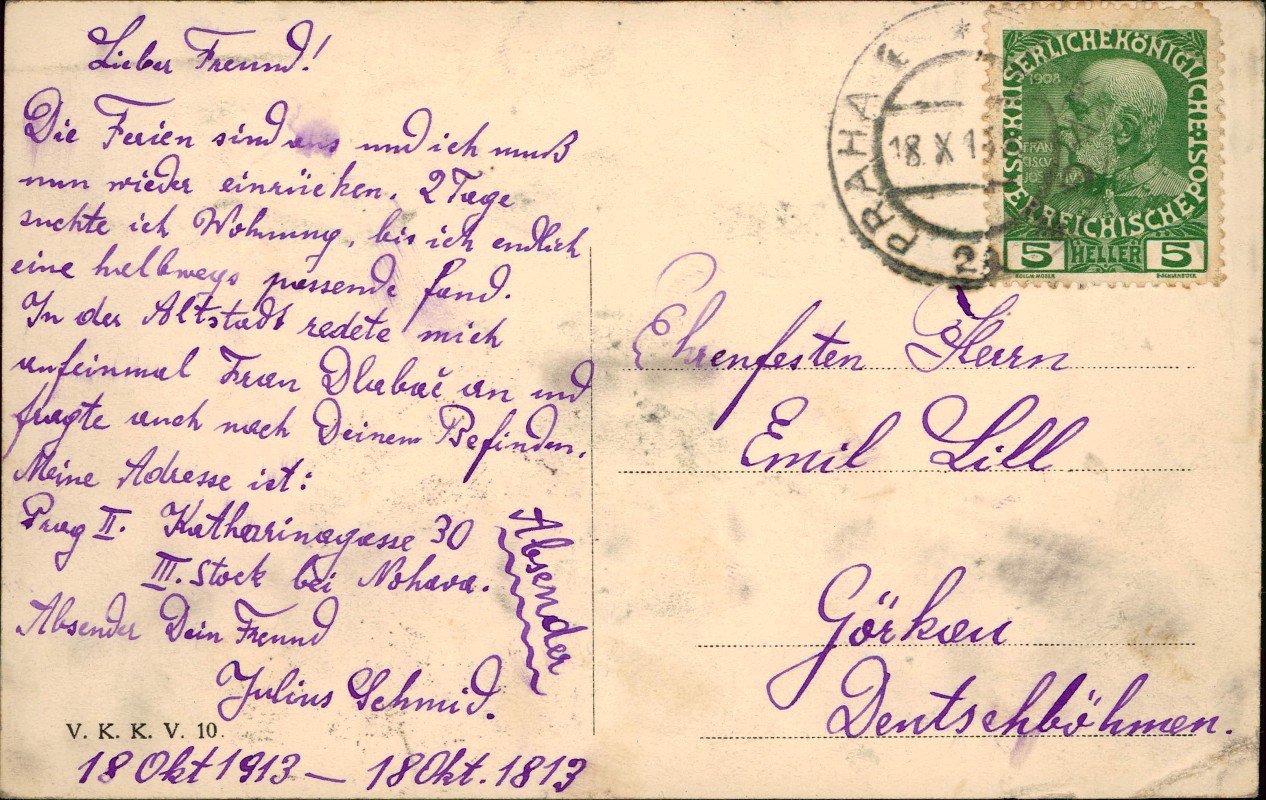 Lieber Freund!
Die Ferien sind aus und ich muß
nun wieder einrücken. 2 Tage
suchte ich Wohnung, bis ich endlich
eine halbwegs passende fand.
In der Altstadt redete mich
aufeinmal Frau Dlabač an und
fragte auch nach Deinem Befinden.
Meine Adresse ist:
Prag II. Katharinagasse 30
III. Stock bei Nohava.
Absender Dein Freund
Julius Schmid.
Absender
V. K. K. V. 10.
18 Okt 1913 — 18 Okt. 1813
PRAHA
18 X 13
KAISERLICHE KÖNIGLICHE
ÖSTERREICHISCHE POST
1908
FRAN
CISCVS
JOSEPHVS
5 HELLER 5
Ehrenfesten Herrn
Emil Lill
Görkau
Deutschböhmen.